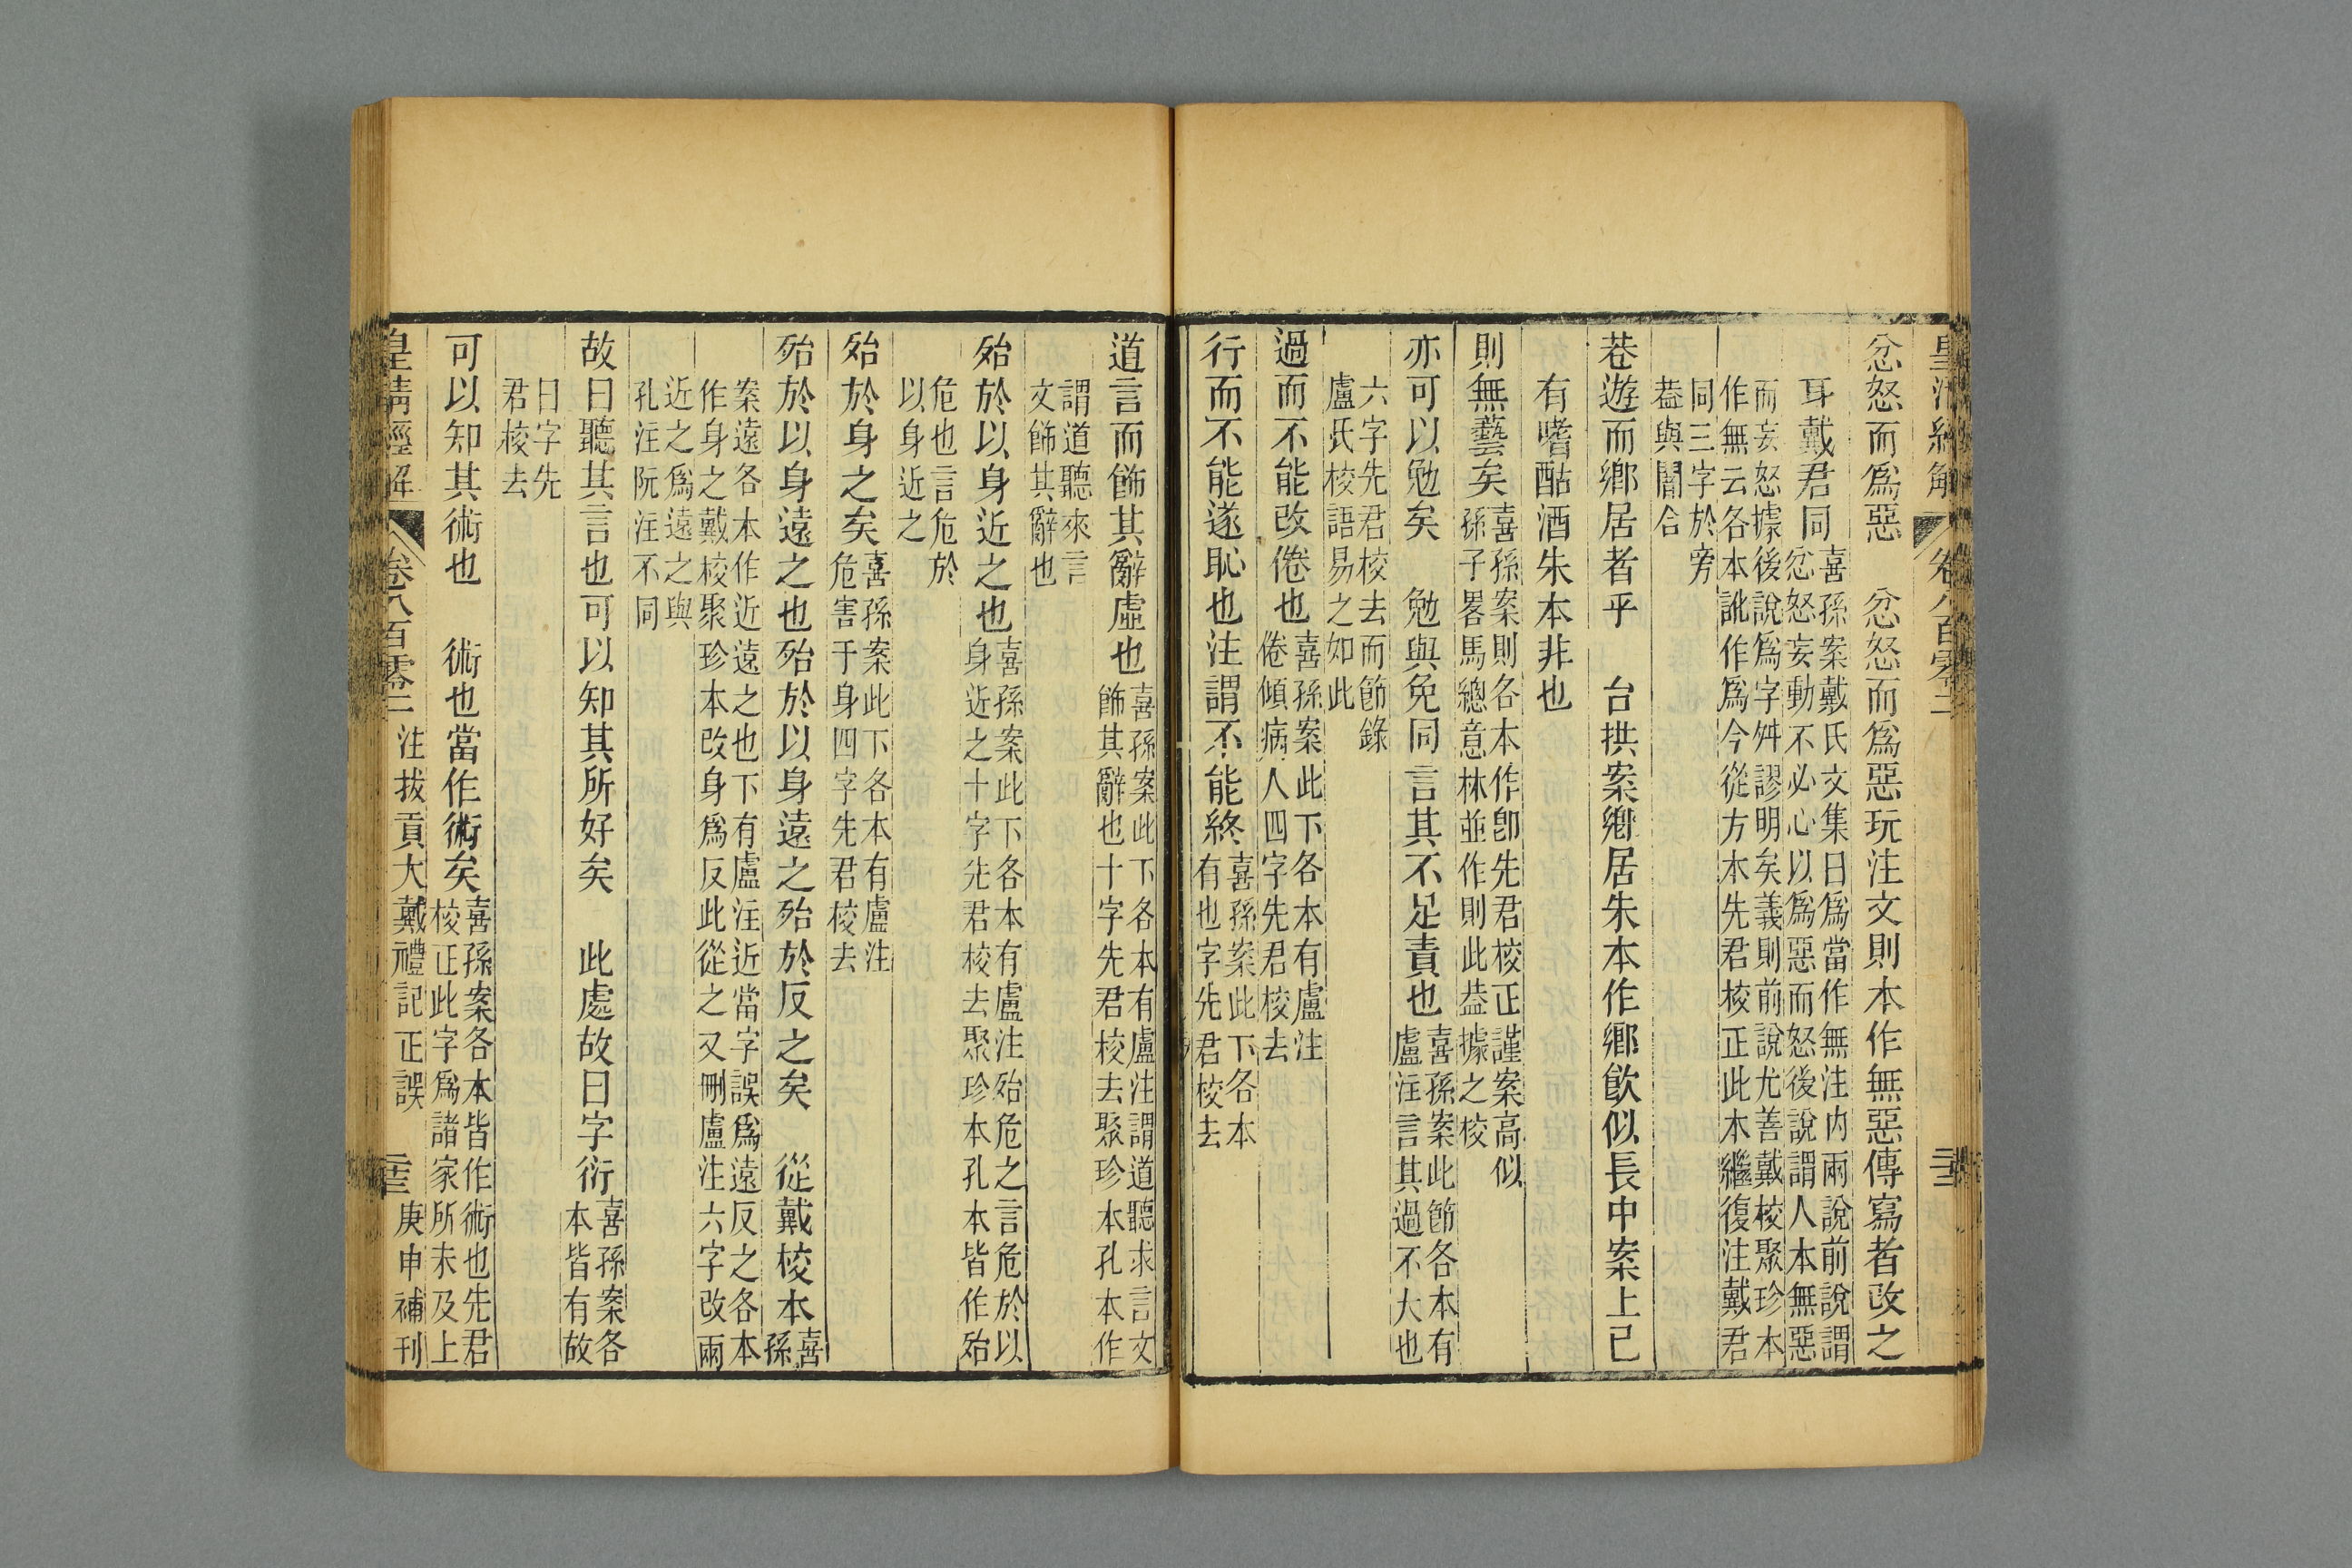 忿怒而爲惡　忿怒而爲惡玩注文則本作無惡傳寫者改之
耳戴君同喜孫案戴氏文集曰爲當作無注内兩說前說謂
忿怒妄動不必心以爲惡而怒後說謂人本無惡
而妄怒據後說爲字舛謬明矣義則前說尤善戴校聚珍本
作無云各本訛作爲今從方本先君校正此本繼復注戴君
同三字於旁
葢與闇合
巷遊而鄉居者乎　台拱案鄉居朱本作鄉飲似長中案上已
有嗜酤酒朱本非也
則無藝矣喜孫案則各本作卽先君校正謹案高似
孫子畧馬總意林並作則此葢據之校
亦可以勉矣　勉與免同　言其不足責也喜孫案此節各本有
盧注言其過不大也
六字先君校去而節錄
盧氏校語易之如此
過而不能改倦也喜孫案此下各本有盧注
倦傾病人四字先君校去
行而不能遂恥也注謂不能終喜孫案此下各本
有也字先君校去
道言而飾其辭虛也喜孫案此下各本有盧注謂道聽求言文
飾其辭也十字先君校去聚珍本孔本作
謂道聽來言
文飾其辭也
殆於以身近之也喜孫案此下各本有盧注殆危之言危於以
身近之十字先君校去聚珍本孔本皆作殆
危也言危於
以身近之
殆於身之矣喜孫案此下各本有盧注
危害于身四字先君校去
殆於以身遠之也殆於以身遠之殆於反之矣　從戴校本喜
孫
案遠各本作近遠之也下有盧注近當字誤爲遠反之各本
作身之戴校聚珍本改身爲反此從之又刪盧注六字改兩
近之爲遠之與
孔注阮注不同
故曰聽其言也可以知其所好矣　此處故曰字衍喜孫案各
本皆有故
曰字先
君校去
可以知其術也　術也當作術矣喜孫案各本皆作術也先君
校正此字爲諸家所未及上
皇清經解　卷八百零二　注拔貢大戴禮記正誤　二十三　庚申補刊